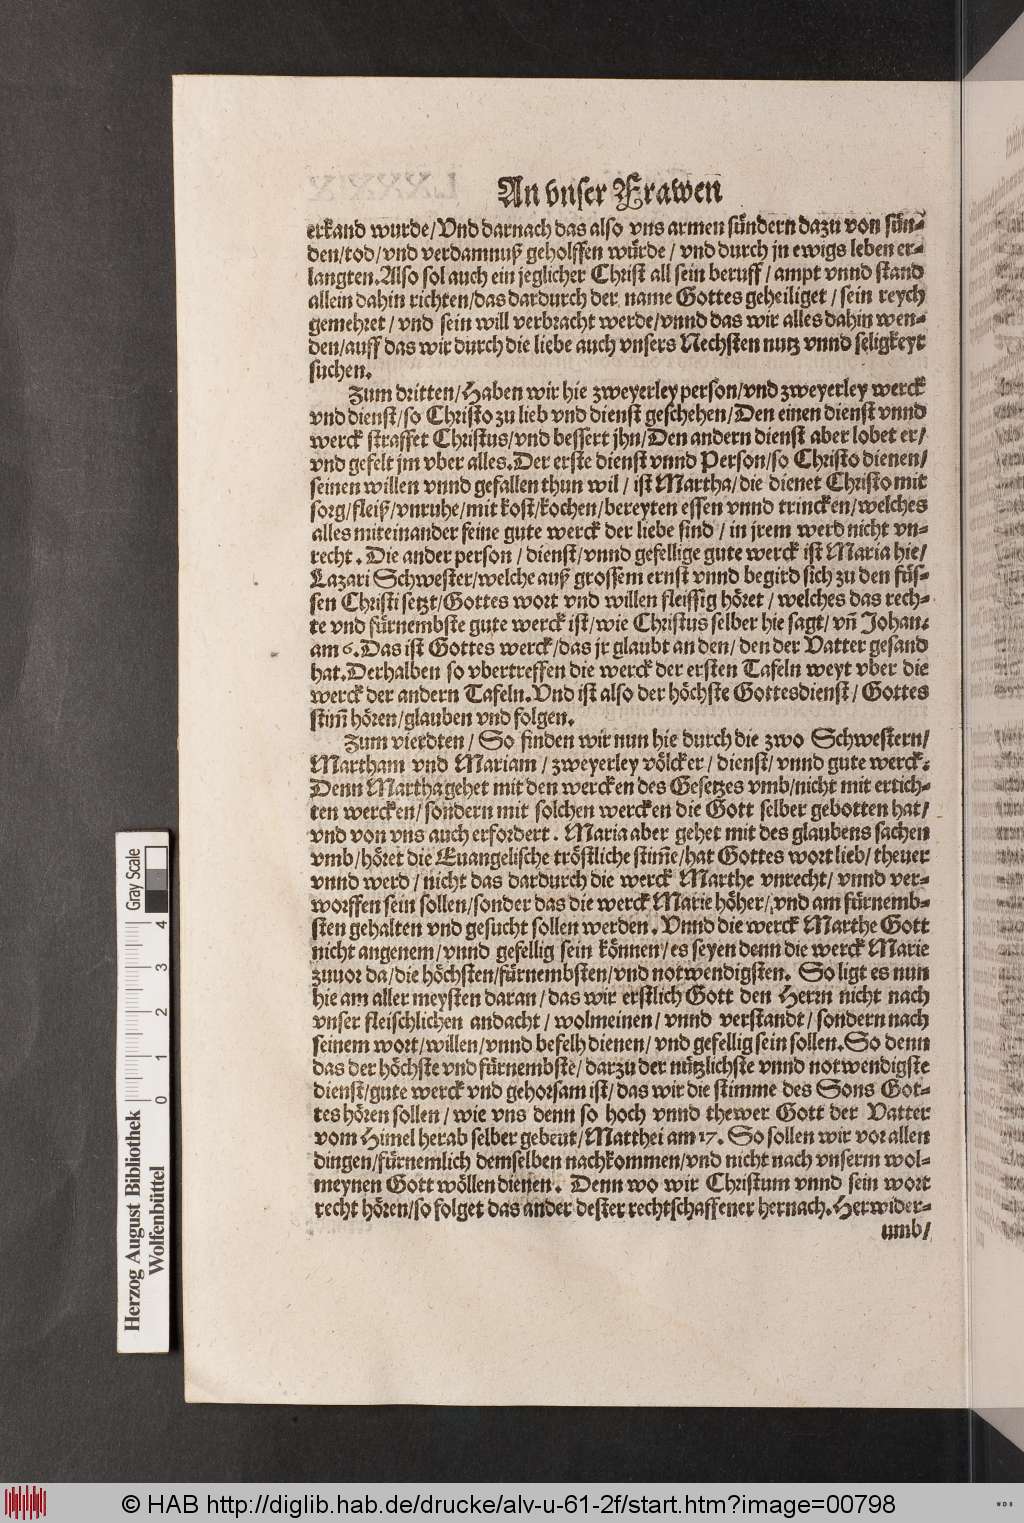 An vnser Frawen
erkand wurde/Vnd darnach das also vns armen sündern dazu von sün-
den/tod/vnd verdamnuß geholffen würde / vnd durch jn ewigs leben er-
langten.Also sol auch ein jeglicher Christ all sein beruff / ampt vnnd stand
allein dahin richten/das dardurch der name Gottes geheiliget / sein reych
gemehret / vnd sein will verbracht werde/vnnd das wir alles dahin wen-
den/auff das wir durch die liebe auch vnsers Nechsten nutz vnnd seligkeyt
suchen.
Zum dritten/Haben wir hie zweyerley person/vnd zweyerley werck
vnd dienst/so Christo zu lieb vnd dienst geschehen/Den einen dienst vnnd
werck straffet Christus/vnd bessert jhn/Den andern dienst aber lobet er/
vnd gefelt jm vber alles.Der erste dienst vnnd Person/so Christo dienen/
seinen willen vnnd gefallen thun wil / ist Martha/die dienet Christo mit
sorg/fleiß/vnruhe/mit kost/kochen/bereyten essen vnnd trincken/welches
alles miteinander feine gute werck der liebe sind / in jrem werd nicht vn-
recht . Die ander person / dienst/vnnd gefellige gute werck ist Maria hie/
Lazari Schwester/welche auß grossem ernst vnnd begird sich zu den füs-
sen Christi setzt/Gottes wort vnd willen fleissig höret / welches das rech-
te vnd fürnembste gute werck ist/wie Christus selber hie sagt/vñ Johan.
am 6.Das ist Gottes werck/das jr glaubt an den/den der Vatter gesand
hat.Derhalben so vbertreffen die werck der ersten Tafeln weyt vber die
werck der andern Tafeln.Vnd ist also der höchste Gottesdienst/ Gottes
stim̃ hören/glauben vnd folgen.
Zum vierdten / So finden wir nun hie durch die zwo Schwestern/
Martham vnd Mariam / zweyerley völcker / dienst/vnnd gute werck.
Denn Martha gehet mit den wercken des Gesetzes vmb/nicht mit ertich-
ten wercken/sondern mit solchen wercken die Gott selber gebotten hat/
vnd von vns auch erfordert . Maria aber gehet mit des glaubens sachen
vmb/höret die Euangelische tröstliche stim̃e/hat Gottes wort lieb/theuer
vnnd werd / nicht das dardurch die werck Marthe vnrecht/ vnnd ver-
worffen sein sollen/sonder das die werck Marie höher/ vnd am fürnemb-
sten gehalten vnd gesucht sollen werden . Vnnd die werck Marthe Gott
nicht angenem/vnnd gefellig sein können/es seyen denn die werck Marie
zuuor da/die höchsten/fürnembsten/vnd notwendigsten. So ligt es nun
hie am aller meysten daran/das wir erstlich Gott den Herrn nicht nach
vnser fleischlichen andacht / wolmeinen/ vnnd verstandt/sondern nach
seinem wort/willen/vnnd befelh dienen/ vnd gefellig sein sollen.So denn
das der höchste vnd fürnembste/ darzu der nützlichste vnnd notwendigste
dienst/gute werck vnd gehorsam ist/das wir die stimme des Sons Got-
tes hören sollen / wie vns denn so hoch vnnd thewer Gott der Vatter
vom Himel herab selber gebeut/Matthei am 17. So sollen wir vor allen
dingen/fürnemlich demselben nachkommen/vnd nicht nach vnserm wol-
meynen Gott wöllen dienen . Denn wo wir Christum vnnd sein wort
recht hören/so folget das ander dester rechtschaffener hernach.Herwider-
umb/
Gray Scale
0 1 2 3 4
Herzog August Bibliothek
Wolfenbüttel
© HAB http://diglib.hab.de/drucke/alv-u-61-2f/start.htm?image=00798